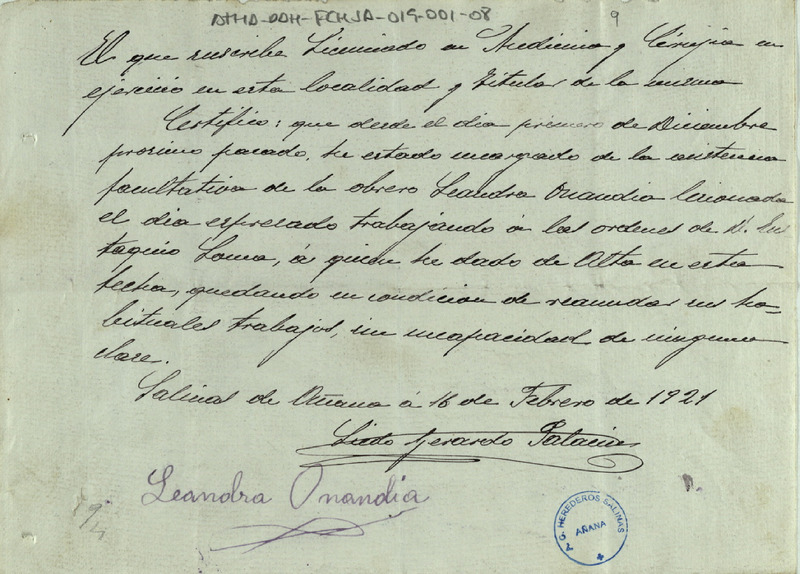 ATHA-DAH-FCHSA-019-001-08
9
El que suscribe Licenciado en Medicina y Cirujia en
ejercicio en esta localidad y Titular de la misma
Certifico: que desde el dia primero de Diciembre
prosimo pasado, he estado encargado de la asistencia
facultativa de la obrero Leandra Onandia lesionada
el dia espresado trabajando á las ordenes de D. Eus
taquio Loma, á quien he dado de Alta en esta
fecha, quedando en condicion de reanudar sus ha=
bituales trabajos, sin incapacidad de ninguna
clase.
Salinas de Añana á 16 de Febrero de 1921
Gerardo Palacios
Leandra Onandia
G. HEREDEROS SALINAS
AÑANA